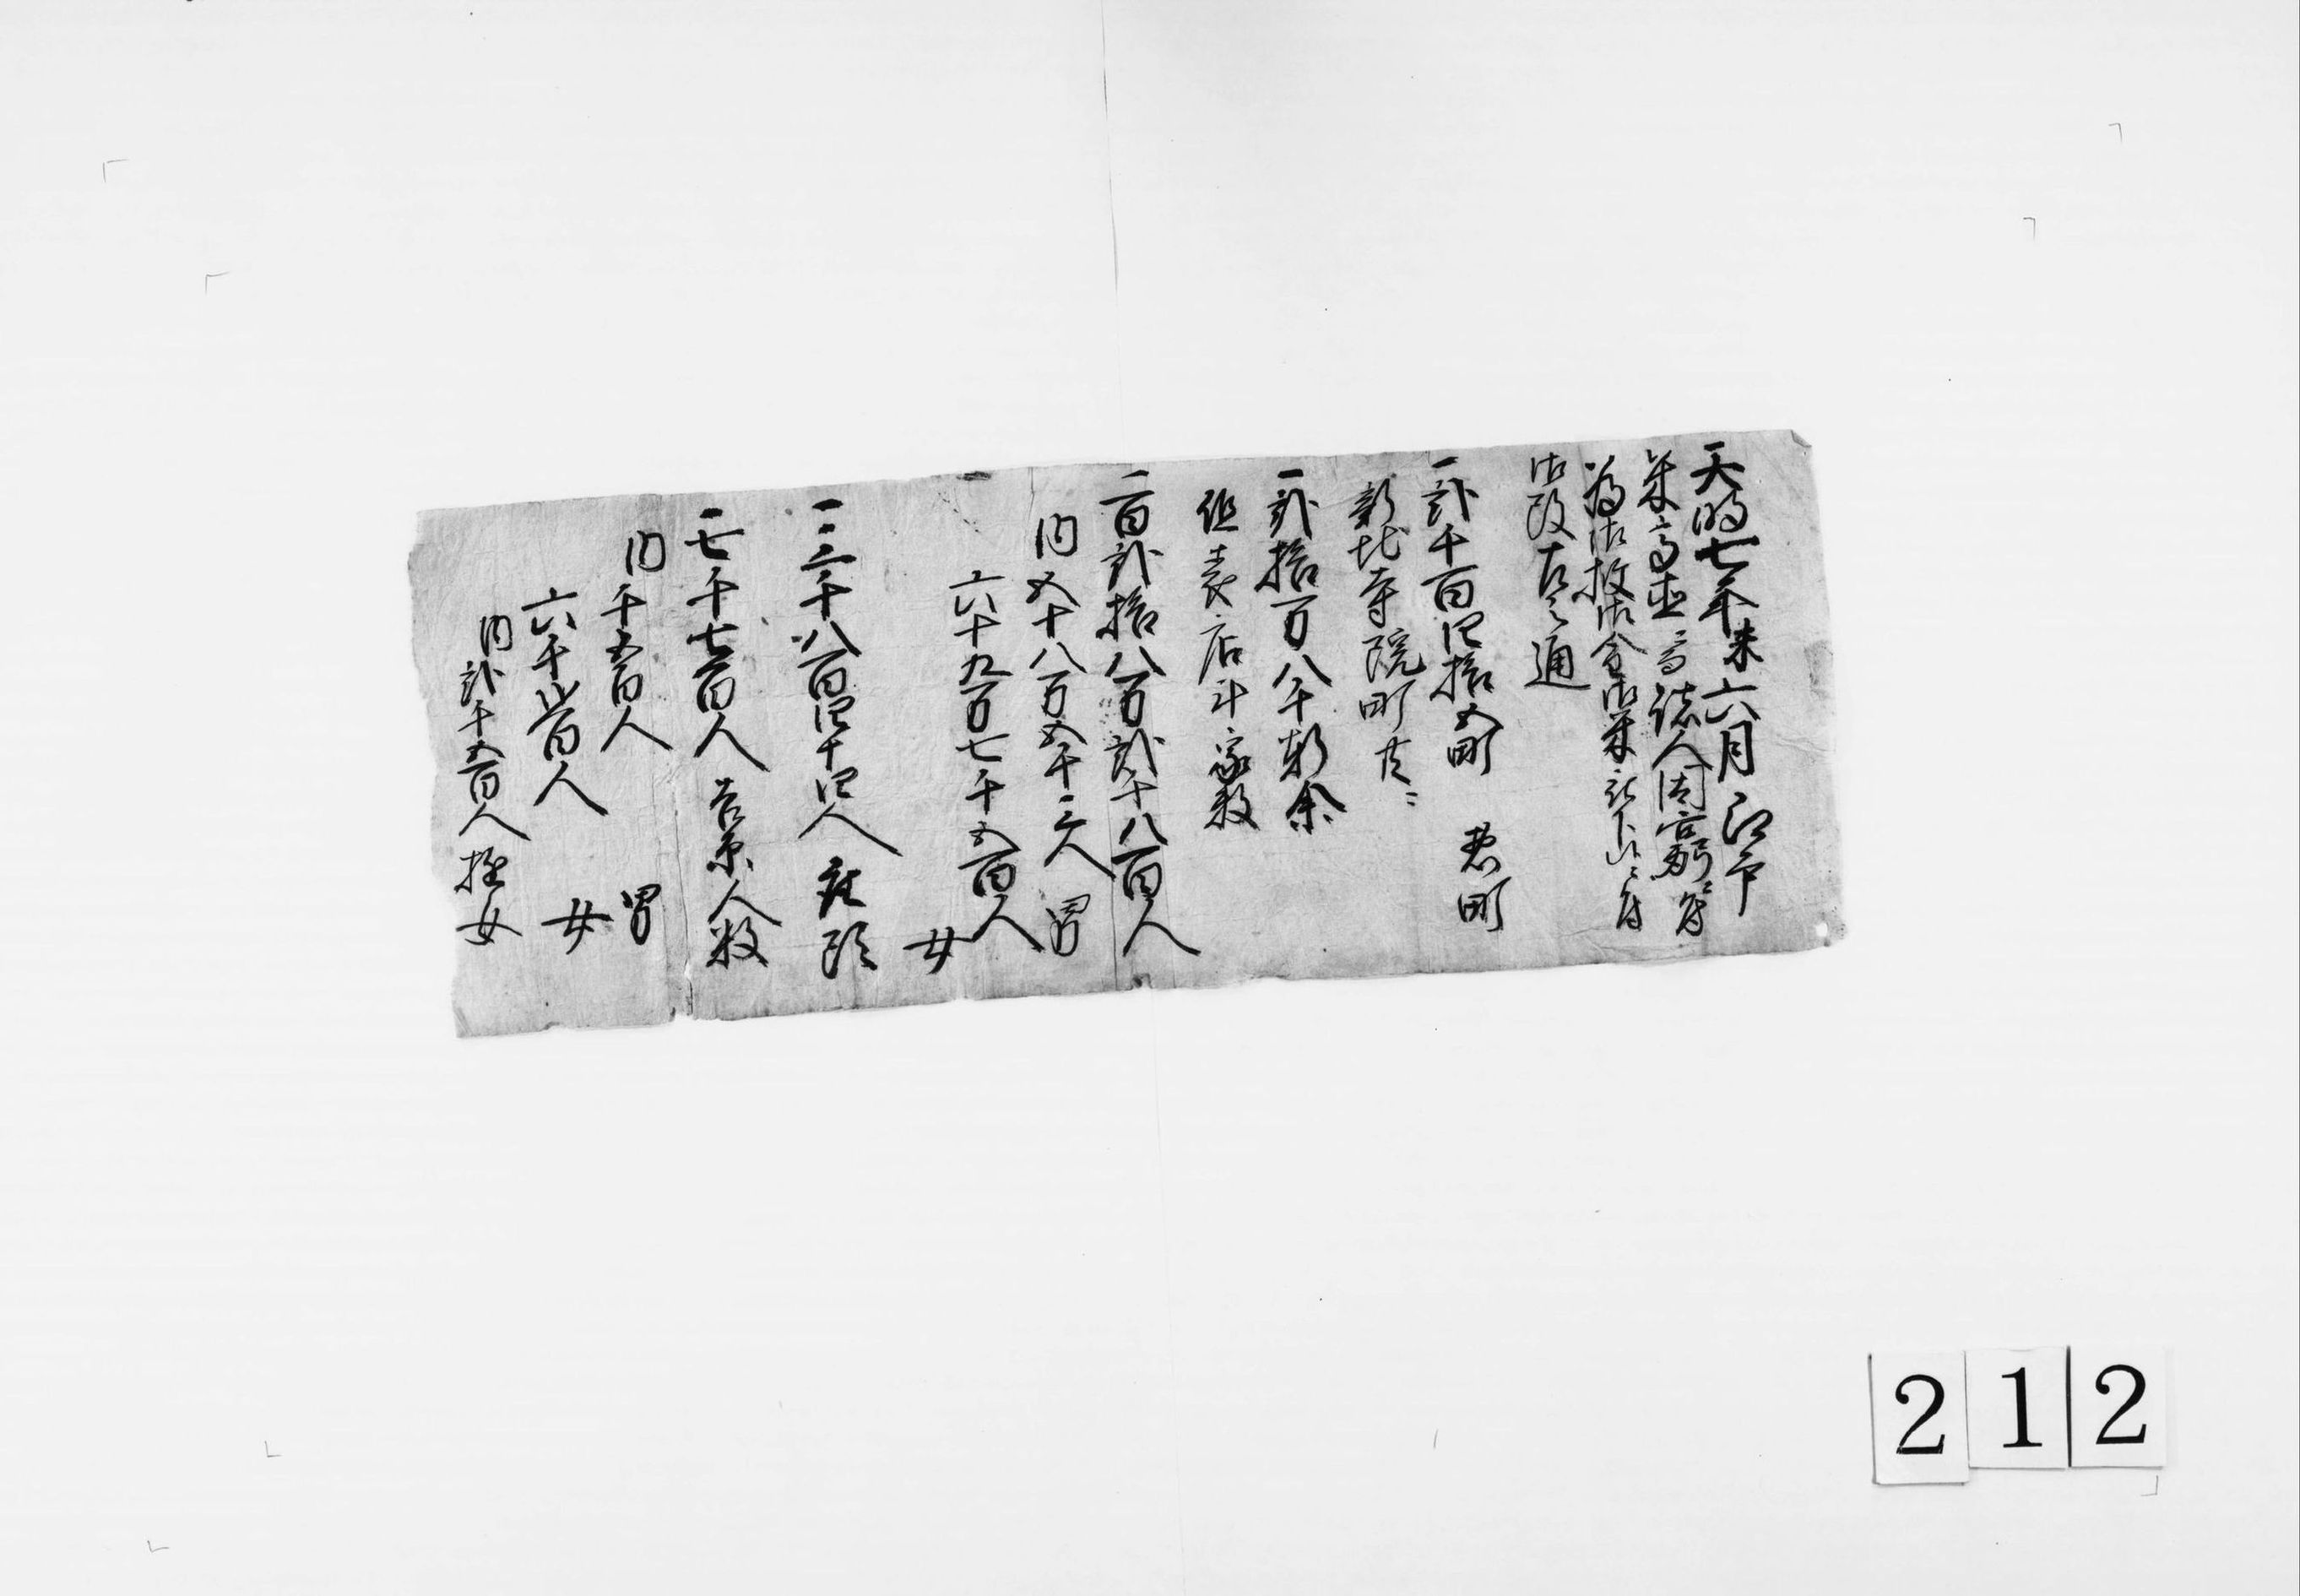 天明七年未六月江戸
米高直ニ而諸人困窮ニ付
為御救御金御米被下候ニ付
御改左之通
一弐千百四拾五町　惣町
新地寺院町共ニ
一弐拾万八千軒余
但表店斗家数
一百弐拾八万弐千八百人
内五十八万五千三人　男
六十九万七千五百人
女
一三千八百四十四人　座頭
一七千七百人　吉原人数
内千五百人　男
六千弐百人　女
内弐千五百人遊女
212